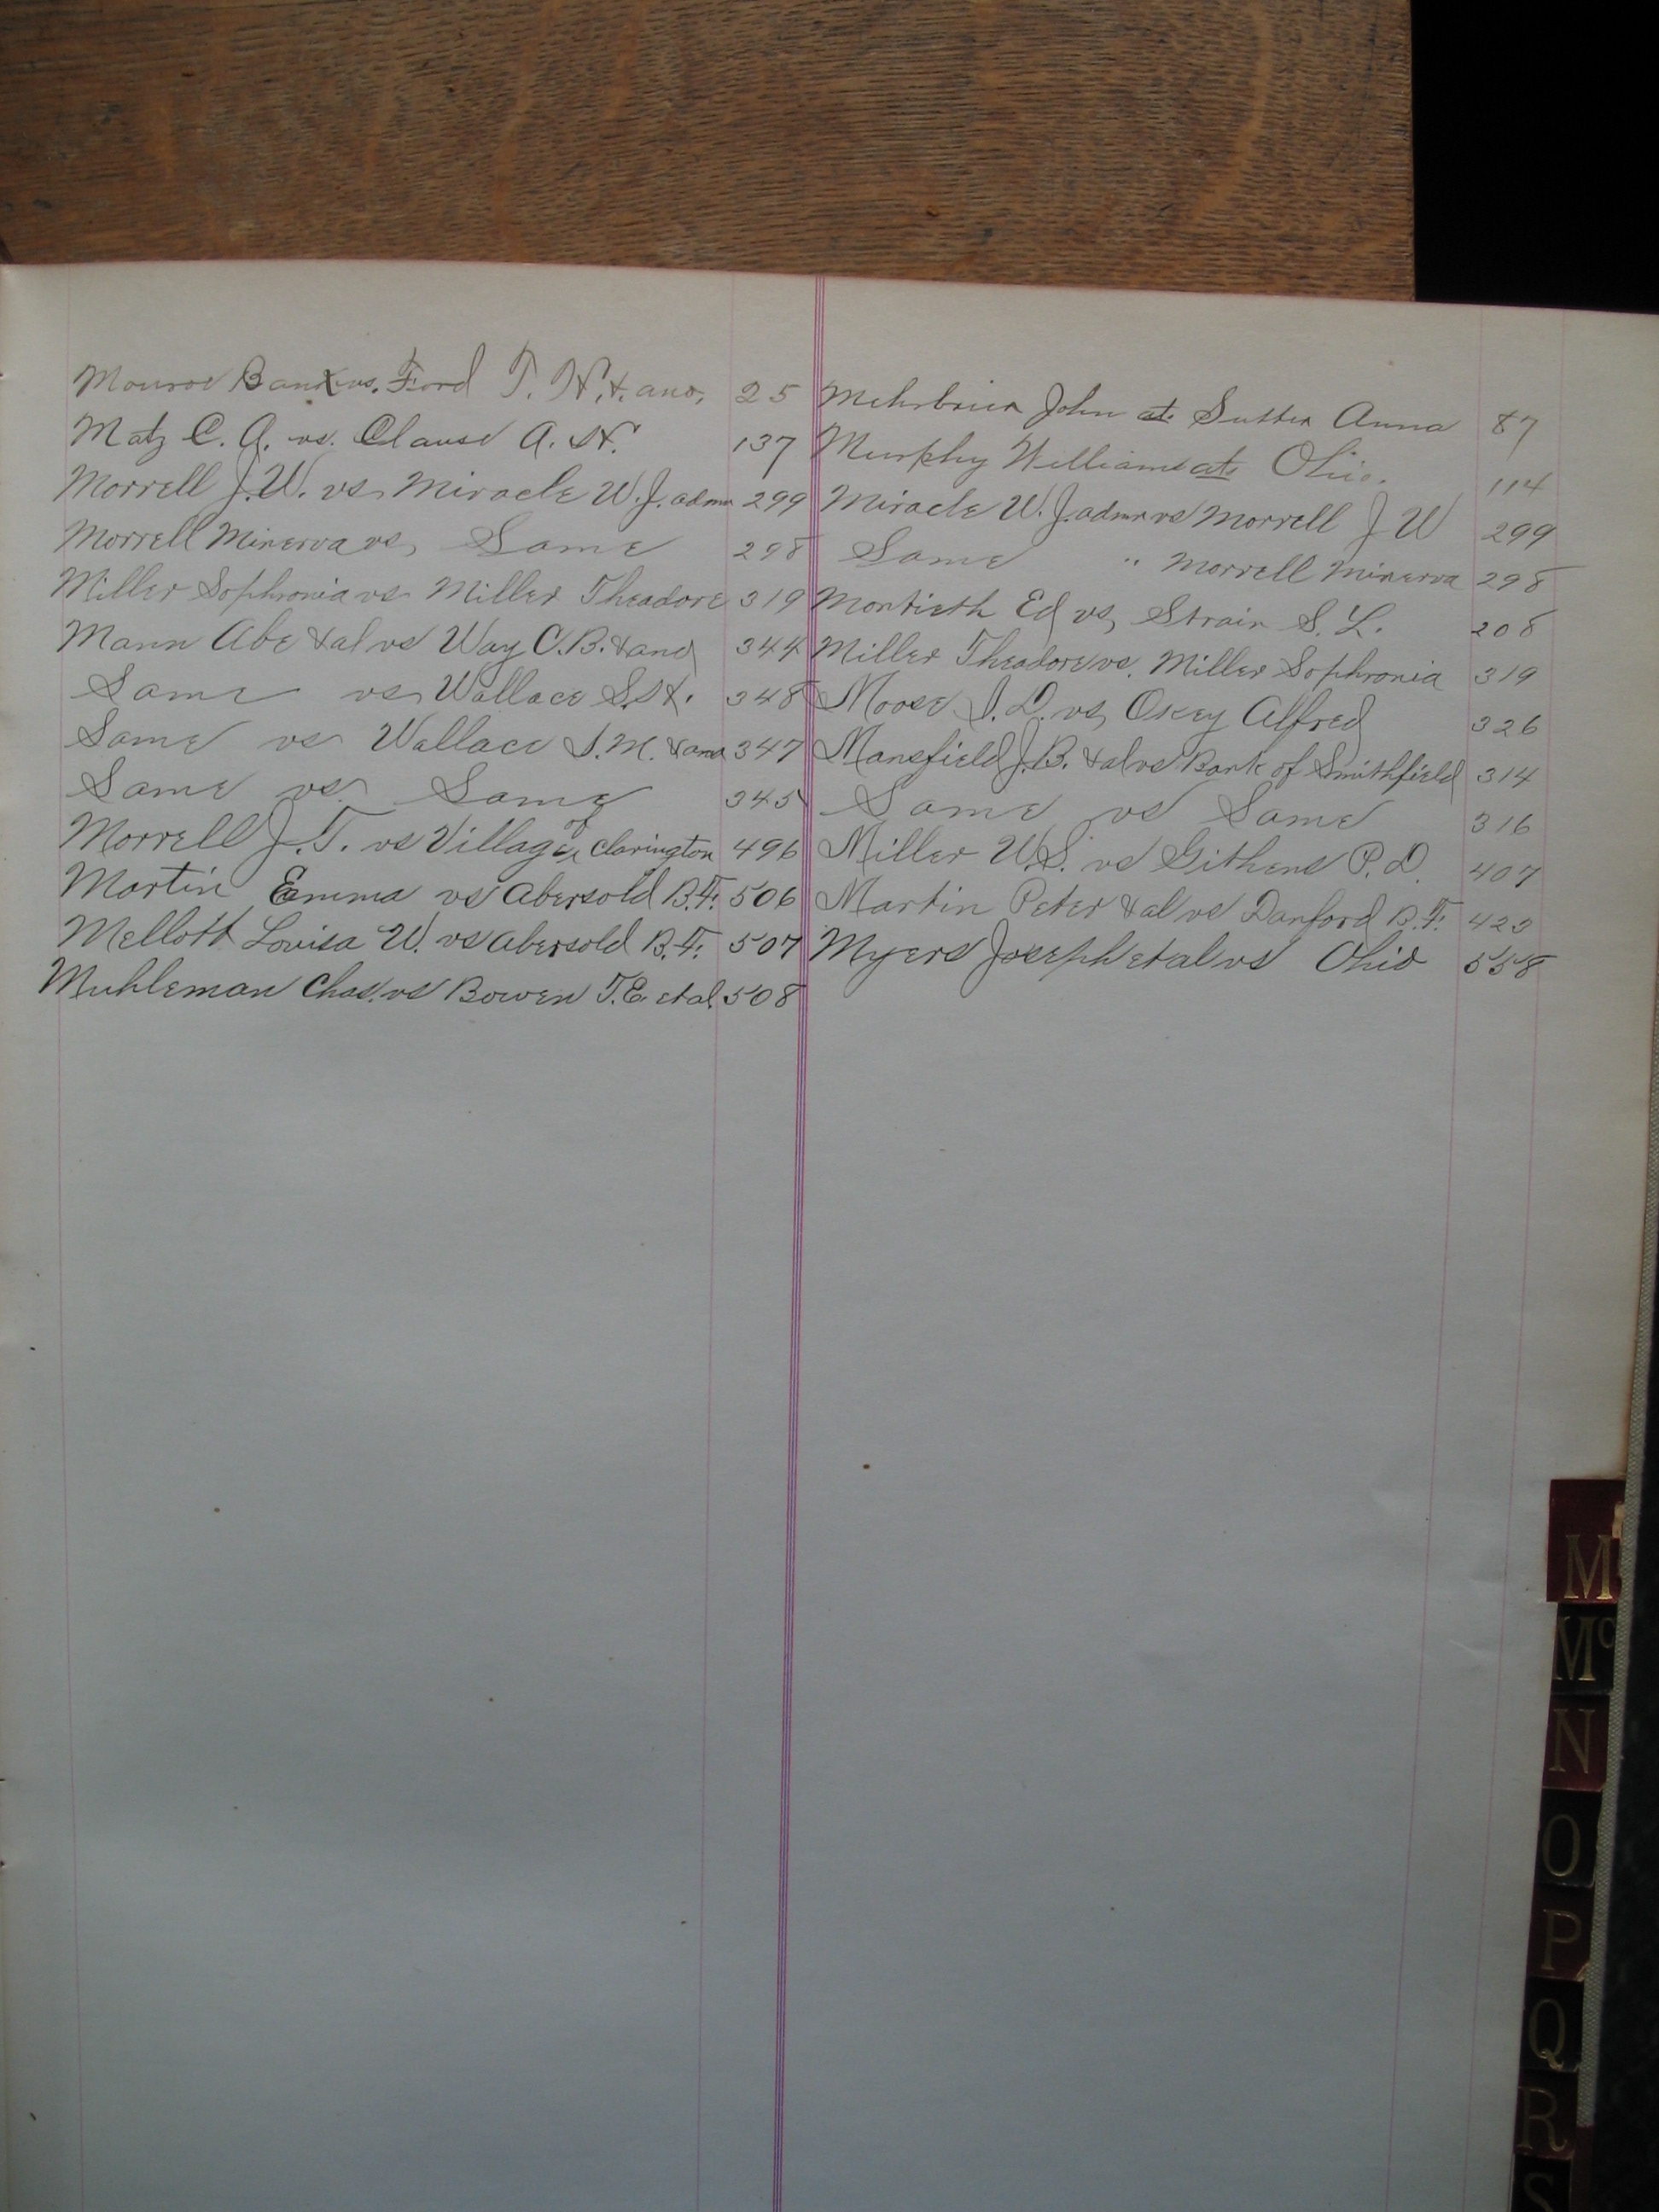 Monroe Bank vs. Ford T. H. & ano. 25
Matz C. A. vs. Clause A. H. 137
Morrell J. W. vs Miracle W. J. admr 299
Morrell Minerva vs, Same 298
Miller Sophronia vs Miller Theadore 319
Mann Abe & al vs Way C. B. & ano 344
Same vs Wallace S. H. 348
Same vs Wallace S. M. & ano 347
Same vs Same 345
Morrell J. T. vs Village of Clarington 496
Martin Emma vs Abersold B. F. 506
Mellott Lovisa W. vs Abersold B. F. 507
Muhleman Chas. vs Bowen T. E et al. 508
Mehrbrien John at. Sutter Anna 87
Murphy William at. Ohio. 114
Miracle W. J. admr vs Morrell J W 299
Same " Morrell Minerva 298
Montieth Ed vs, Strain S. L. 208
Miller Theadore vs. Miller Sophronia 319
Moose I. D. vs, Okey Alfred 326
Mansfield J. B. & al vs Bank of Smithfield 314
Same vs Same 316
Miller U. S. vs Githens P. D. 407
Martin Peter & al vs Danford B. F. 423
Myers Joseph et al vs Ohio 558
M
Mc
N
O
P
Q
R
S